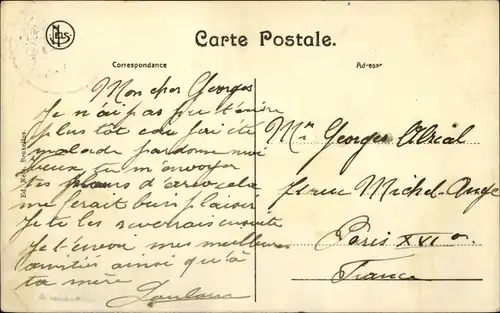 Nels
Carte Postale.
Correspondance
Adresse
Ed. Nels, Bruxelles
Mon cher Georges
Je n'ai pas pu t'écrire
plus tôt car j'ai été
malade pardonne moi
veux tu m'envoyer
tes d'arvor cela
me ferait bien plaisir
Je te les reverrais ensuite
Je t'envoi mes meilleures
amitiés ainsi qu'à
ta mère
Loulou
Mr Georges
rue Michel-Ange
Paris XVIe
France